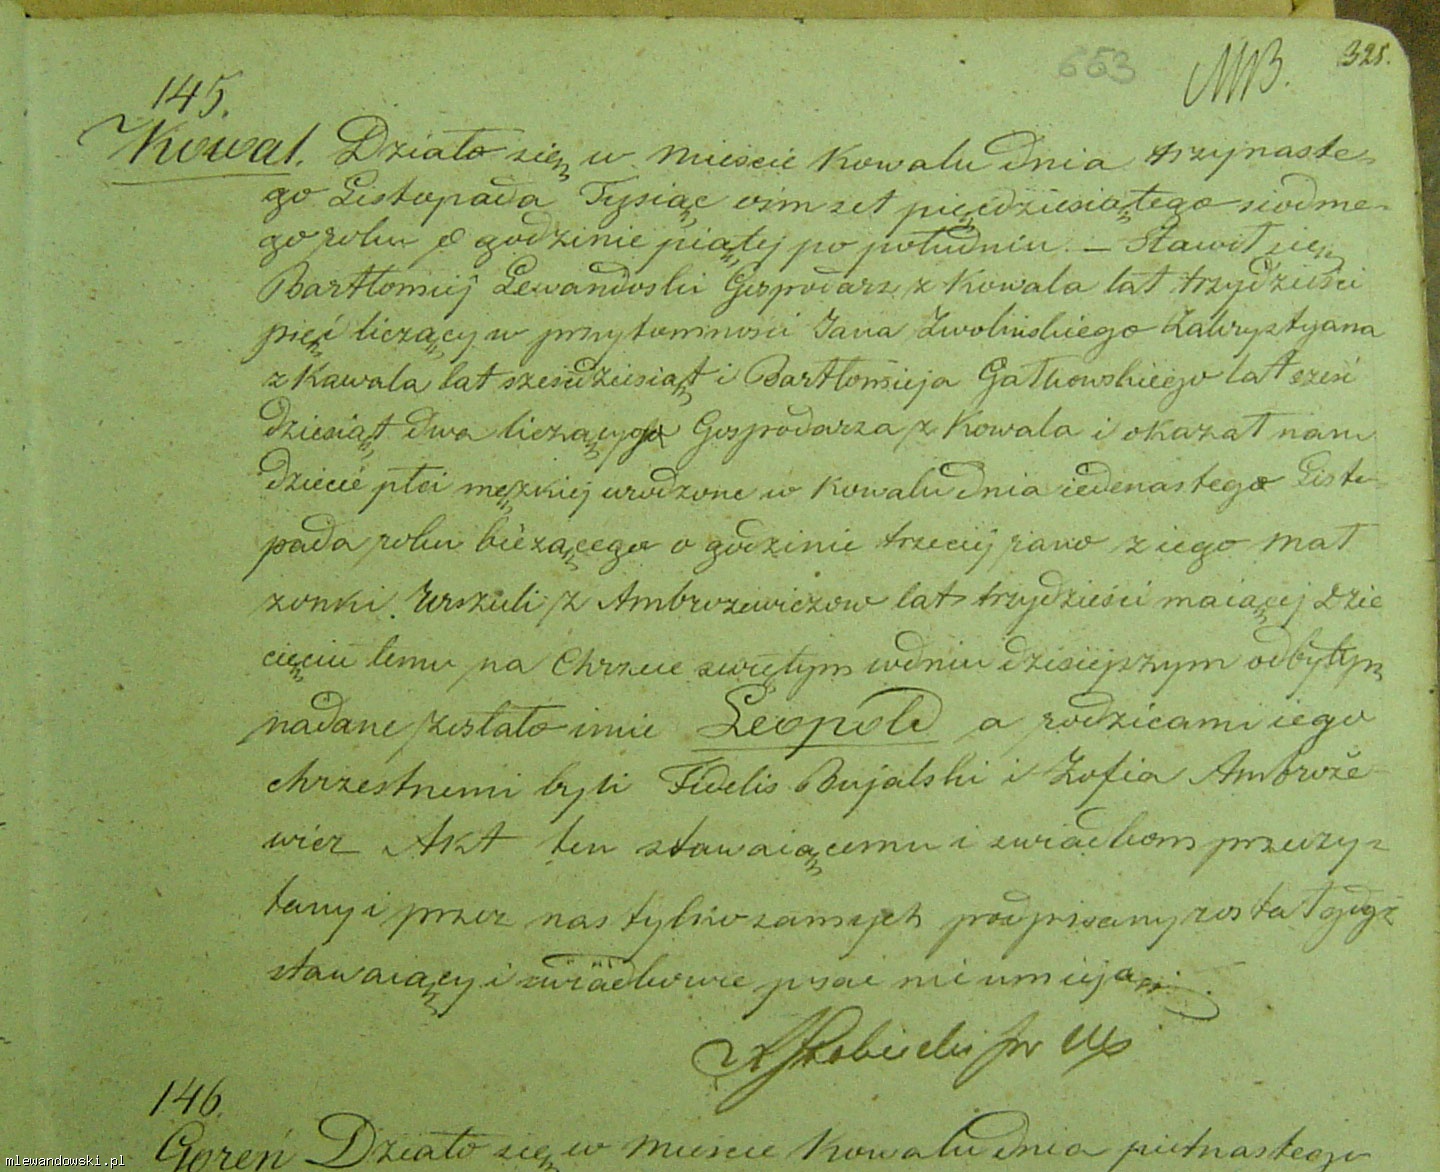 653 325.
145.
Kowal. Działo się w mieście Kowalu dnia trzynaste-
go Listopada Tysiąc ośmset pięćdziesiątego siódme-
go roku o godzinie piątej po południu — Stawił się
Bartłomiej Lewandoski Gospodarz z Kowala lat trzydzieści
pięć liczący w przytomności Jana Zwolińskiego Zakrystyana
z Kawala lat sześćdziesiąt i Bartłomieja Gałkowskiego lat sześć
dziesiąt dwa liczącego Gospodarza z Kowala i okazał nam
dziecie płci męzkiej urodzone w Kowalu dnia iedenastego Listo-
pada roku bieżącego o godzinie trzeciej rano z iego mał
zonki Urszuli z Ambrozewiczow lat trzydzieści maiącej Dzie
cięciu temu na Chrzcie świętym w dniu dzisiejszym odbytym
nadane zostało imie Leopold a rodzicami iego
chrzestnemi byli Fidelis Bujalski i Zofia Ambroże-
wicz Akt ten stawaiącemu i swiadkom przeczy-
tany i przez nas tylko samych podpisany został gdyż
stawaiący i świadkowie pisać nieumieją.
146.
Goreń Działo się w mieście Kowalu dnia pietnastego
mlewandowski.pl